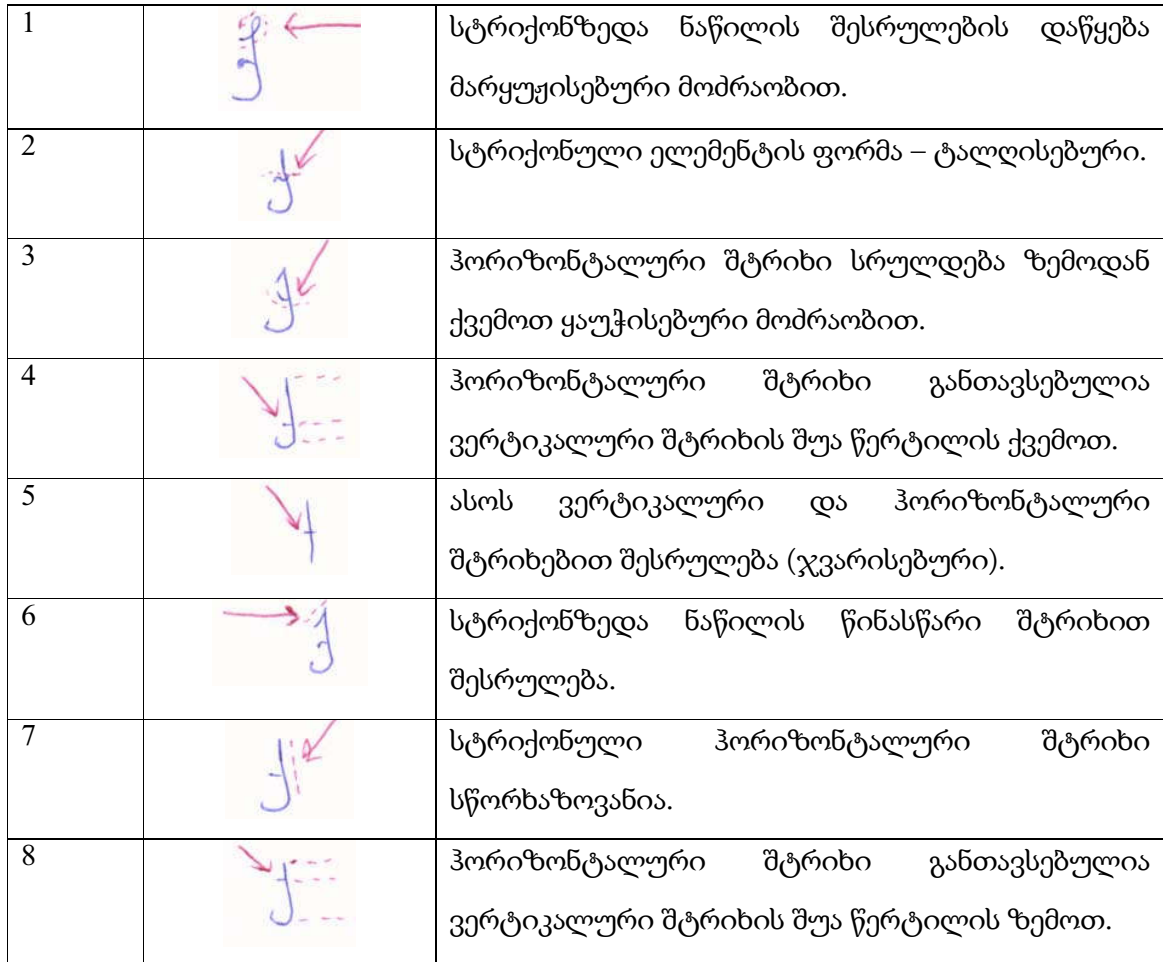 1
სტრიქონზედა ნაწილის შესრულების დაწყება
მარყუჟისებური მოძრაობით.
2
სტრიქონული ელემენტის ფორმა – ტალღისებური.
3
ჰორიზონტალური შტრიხი სრულდება ზემოდან
ქვემოთ ყაუჭისებური მოძრაობით.
4
ჰორიზონტალური შტრიხი განთავსებულია
ვერტიკალური შტრიხის შუა წერტილის ქვემოთ.
5
ასოს ვერტიკალური და ჰორიზონტალური
შტრიხებით შესრულება (ჯვარისებური).
6
სტრიქონზედა ნაწილის წინასწარი შტრიხით
შესრულება.
7
სტრიქონული ჰორიზონტალური შტრიხი
სწორხაზოვანია.
8
ჰორიზონტალური შტრიხი განთავსებულია
ვერტიკალური შტრიხის შუა წერტილის ზემოთ.